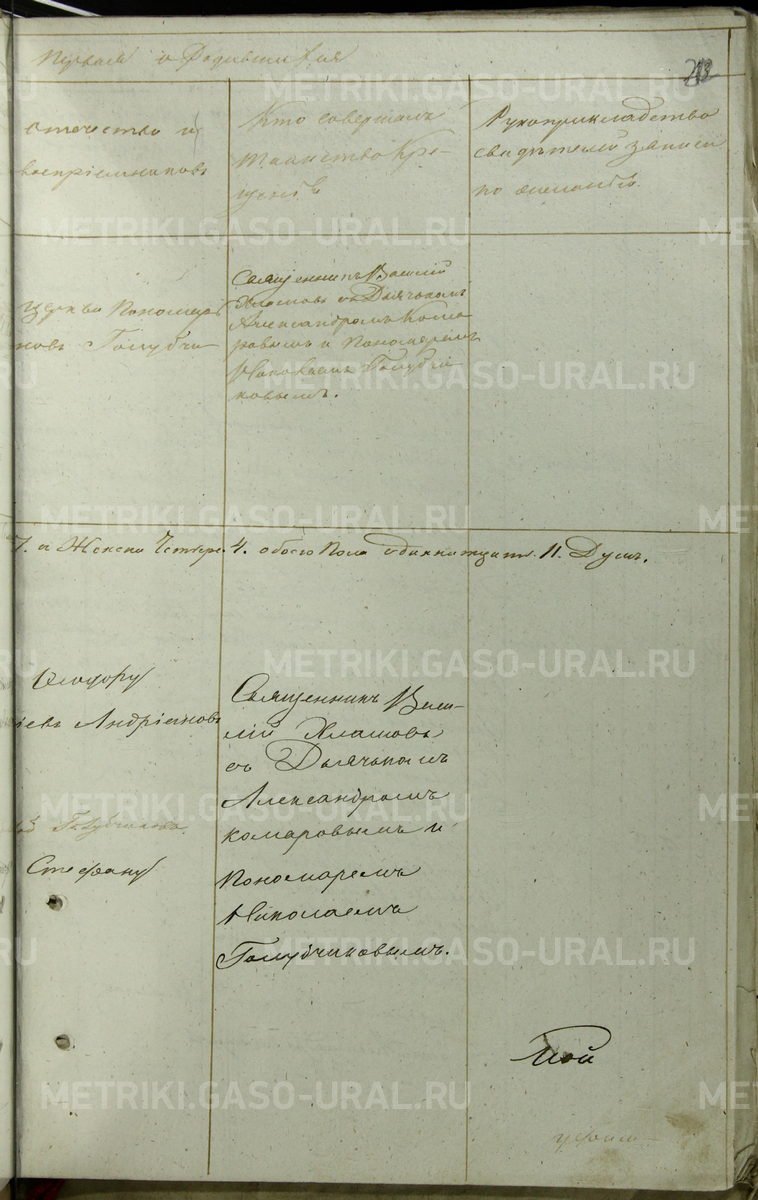 о Родившихся
213
отечество и
воспріемниковъ
Кто совершалъ
таинство Кре-
щенія
Рукоприкладство
свидѣтелей записи
по желанію.
церкви Пономарь
новъ Голубчи
Священникъ Василій
Хламовъ съ Дьячькомъ
Александромъ Кома
ровымъ и Пономаремъ
Николаемъ Голубчи
ковымъ.
7. а Женска Четыре. 4. обоего Пола одиннатцать. 11. Душъ.
Ѳеодору
іевъ Андріяновъ
Голубчикова.
Стефану
Священникъ Васи-
лій Хламовъ
съ Дьячькомъ
Александромъ
комаровымъ и
Пономаремъ
Николаемъ
Голубчиковымъ.
мой
METRIKI.GASO-URAL.RU